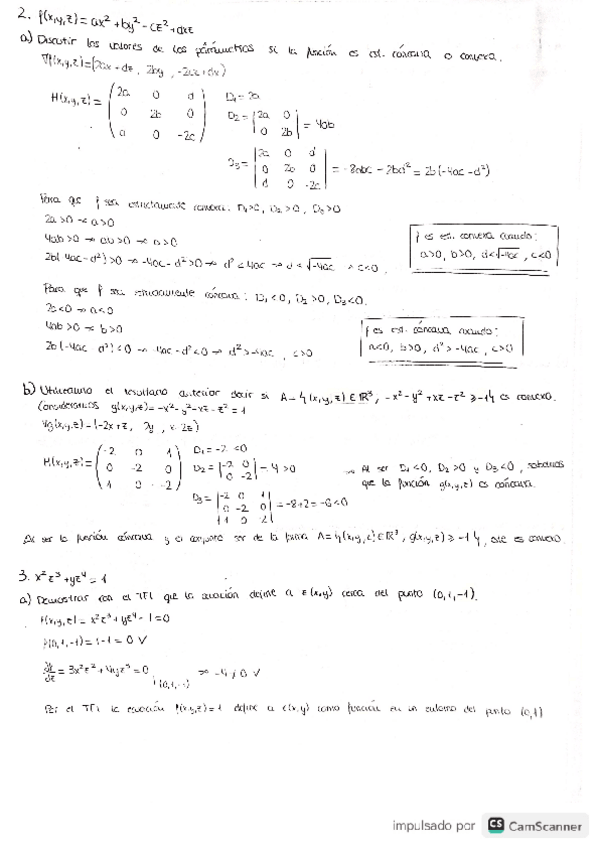 2. f(x,y,z)=ax²+by²-cz²+dxz
a) Discutir los valores de los parámetros si la función es est. cóncava o convexa.
∇f(x,y,z)=(2ax+dz, 2by, -2cz+dx)
H(x,y,z)= (2a 0 d
0 2b 0
0 -2c)
D₁=2a
D₂=|2a 0
0 2b|=4ab
D₃=|2a 0 d
0 2b 0
d 0 -2c|=-8abc-2bd²=2b(-4ac-d²)
Para que f sea estrictamente convexa: D₁>0, D₂>0, D₃>0
2a>0 → a>0
4ab>0 → ab>0 → b>0
2b(-4ac-d²)>0 → -4ac-d²>0 → d²<-4ac → d<√-4ac, c<0
f es est. convexa cuando:
a>0, b>0, d<√-4ac, c<0
Para que f sea estrictamente cóncava: D₁<0, D₂>0, D₃<0.
2a<0 → a<0
4ab>0 → b>0
2b(-4ac-d²)<0 → -4ac-d²<0 → d²>-4ac, c>0
f es est. cóncava cuando:
a<0, b>0, d²>-4ac, c>0
b) Utilizando el resultado anterior decir si A={(x,y,z)∈ℝ³, -x²-y²+xz-z²≥-1} es convexo.
Consideramos g(x,y,z)=-x²-y²-xz-z²=1
∇g(x,y,z)=(-2x+z, 2y, x-2z)
H(x,y,z)= (-2 0 1
0 -2 0
1 0 -2)
D₁=-2<0
D₂=|-2 0
0 -2|=4>0
D₃=|-2 0 1
0 -2 0
1 0 2|=-8+2=-6<0
→ Al ser D₁<0, D₂>0 y D₃<0, sabemos
que la función g(x,y,z) es cóncava.
Al ser la función cóncava y el conjunto ser de la forma A={(x,y,z)∈ℝ³, g(x,y,z)≥-1}, es convexo
3. x²z³+yz⁴=1
a) Demostrar con el TFI que la ecuación define a z(x,y) cerca del punto (0,1,-1).
f(x,y,z)=x²z³+yz⁴-1=0
f(0,1,-1)=1-1=0 V
=3x²z²+4yz³=0 |(0,1,-1) ⇒ -4≠0 V
Por el TFI la ecuación f(x,y,z)=1 define a z(x,y) como función en un entorno del punto (0,1)
impulsado por CS CamScanner